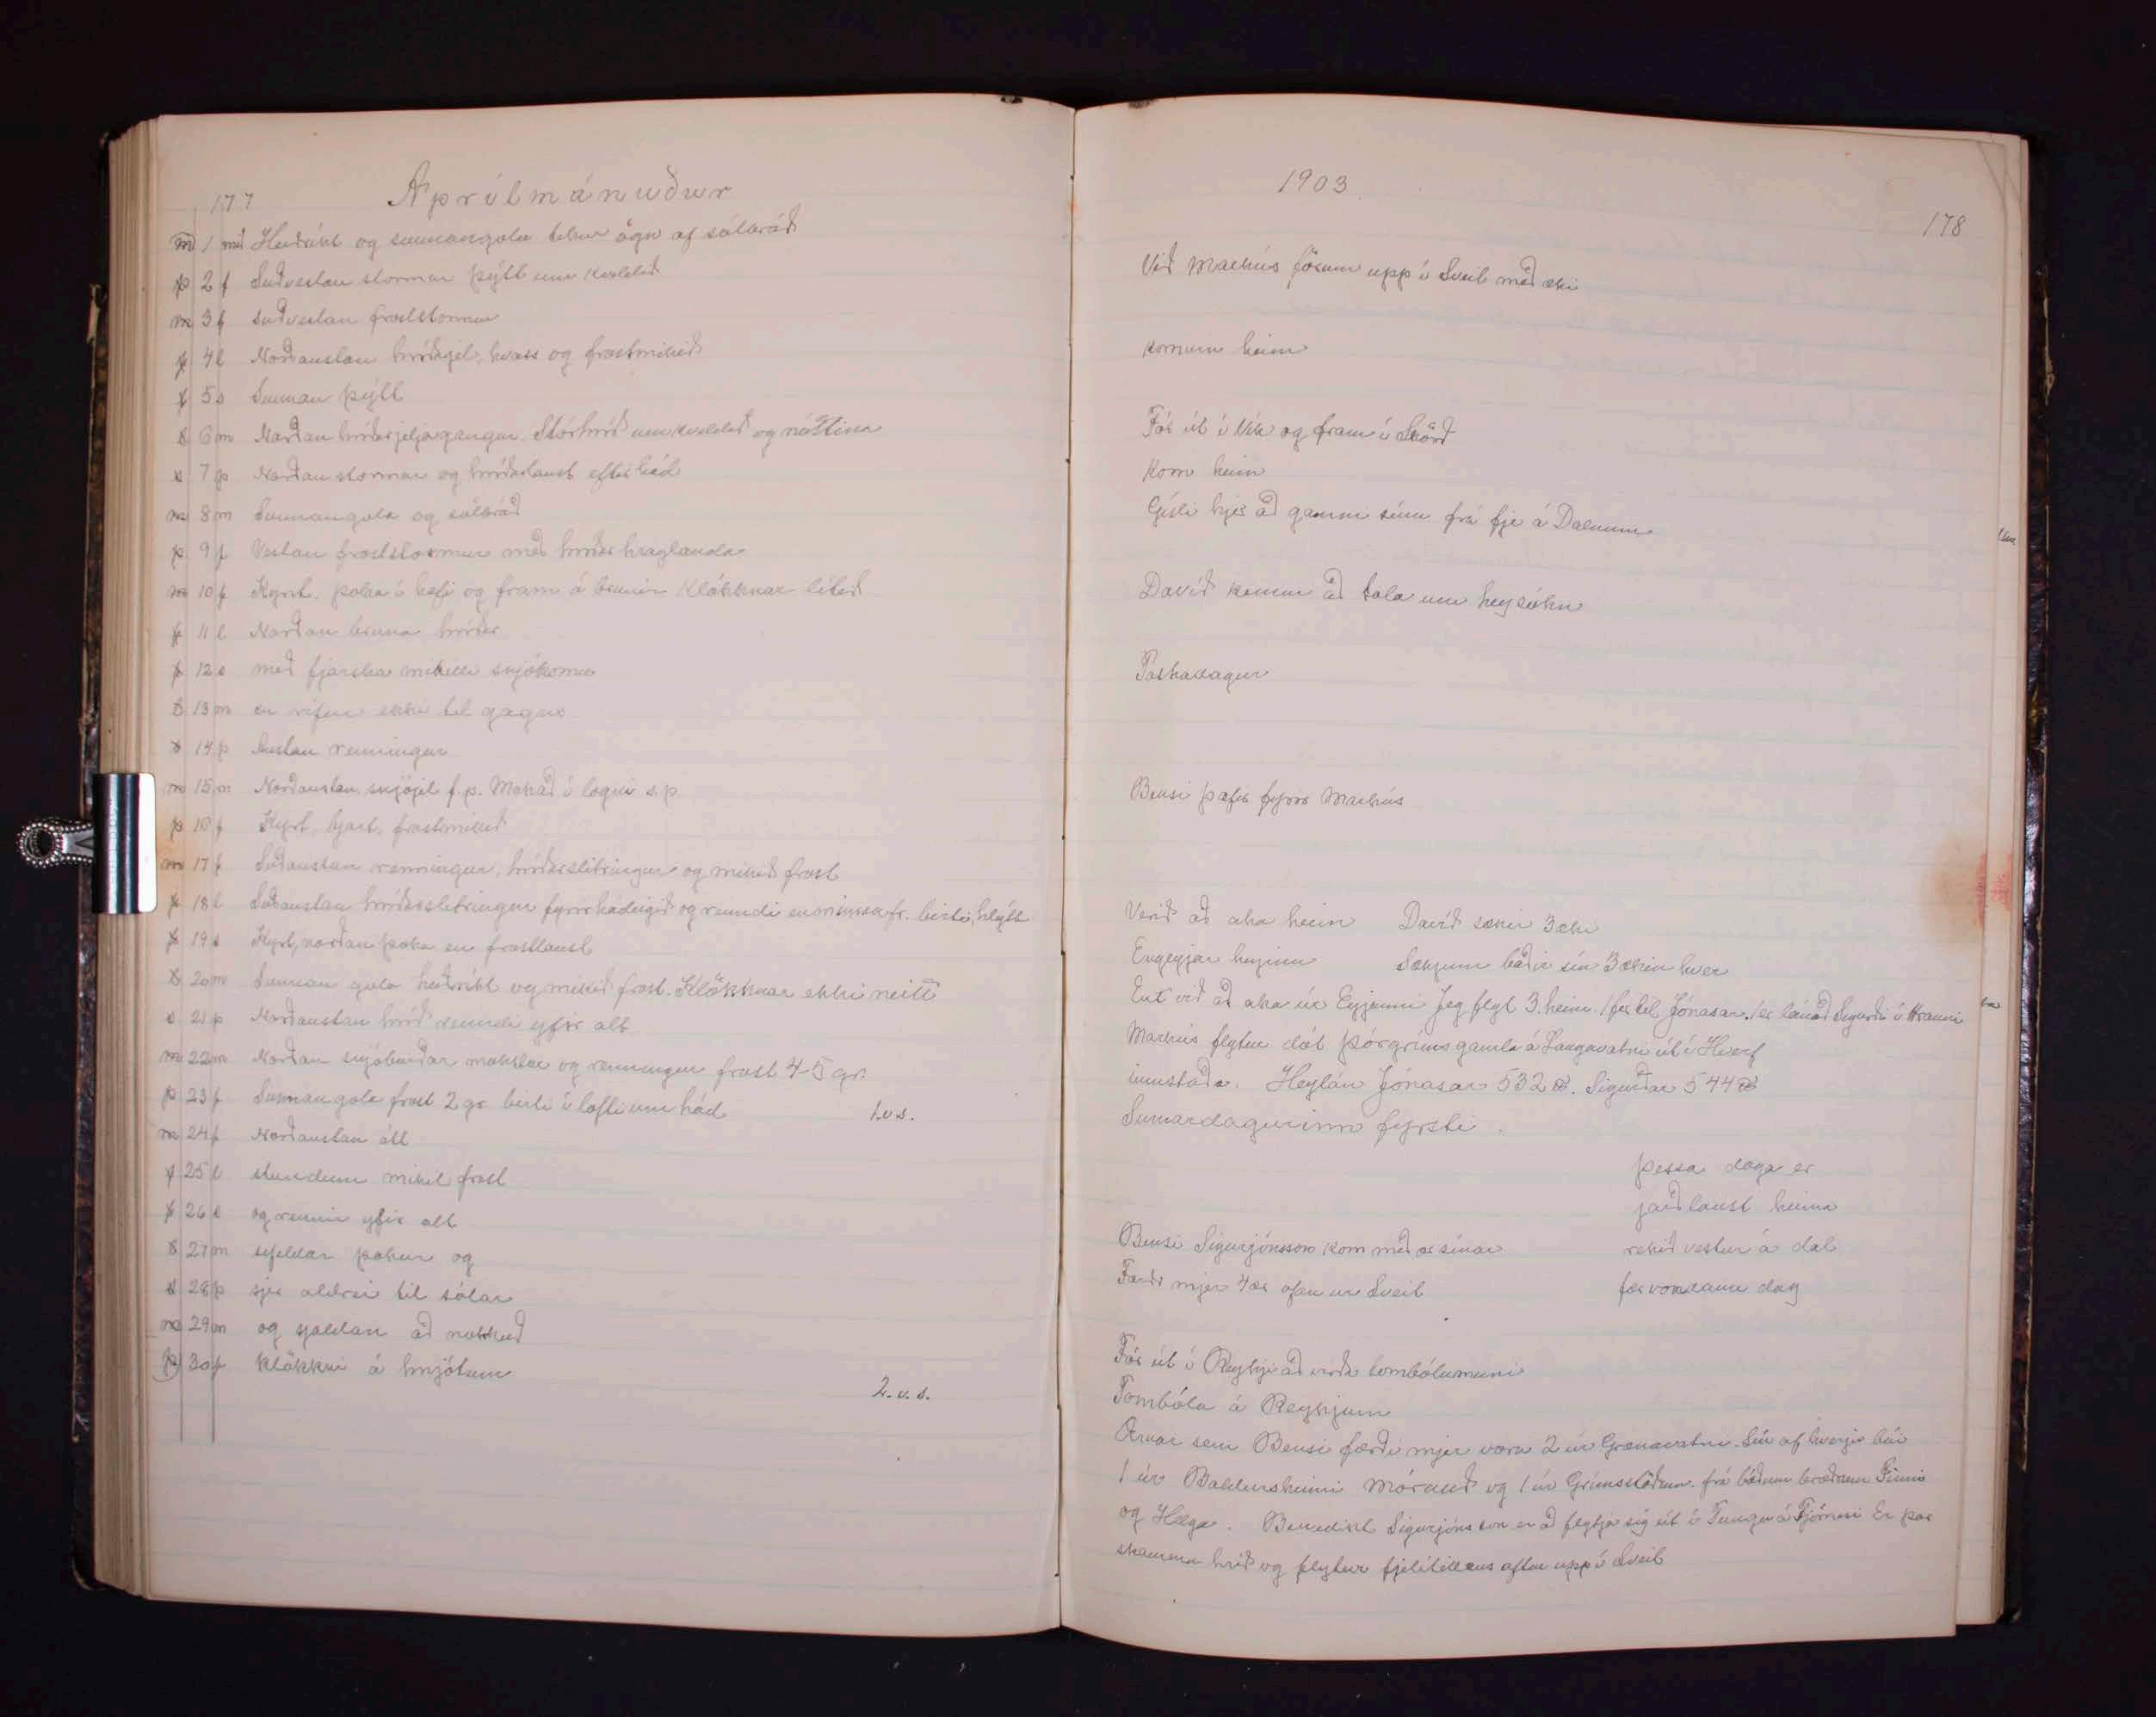 177 Aprílmánuður
m 1 mð Heiðríkt og sunnangola tekur ögn af sólbráð
þ 2 f Suðvestan stormur þýtt um kveldið
m 3 f suðvestan froststormur
f 4 l Norðaustan hríðjel, hvass og frostmikið
f 5 s Sunnan þýtt
6 m Norðan hríðarjeljagangur. Stórhríð um kveldið og nóttina
s 7 þ Norðan stormur og hríðarlaust eftir hád
m 8 m Sunnangola og sólbráð
þ 9 f Vestan froststormur með hríðar hraglanda
m 10 f Kyrt. þoka í hafi og fram á brúnir Klökknar lítið
f 11 l Norðan bruna hríðar
f 12 s með fjarska mikilli snjókomu
13 m en rífur ekki til gagns
14 þ Austan renningur
m 15 m Norðaustan snjójel f.p. Mokað í logni s.p
þ 16 f Kyrt, bjart, frostmikið
m 17 f Suðaustan renningur, hríðarslitringur og mikið frost
f 18 l Suðaustan hríðarslitringur fyrir hádegið og renndi birti, hlýtt
19 s Kyrt, norðan þoka en frostlaust
20 m Sunnan gola heiðríkt og mikið frost. Klökknar ekki neitt
s 21 þ Norðaustan hríð renndi yfir alt
m 22 m Norðan snjóburðar mokstur og renningur frost 4-5 gr.
þ 23 f Sunnangola frost 2 gr birti í lofti um hád 1.v.s.
m 24 f Norðaustan átt
f 25 l stundum mikil frost
f 26 s og rennir yfir alt
27 m sífeldar þokur og
s 28 þ sjer aldrei til sólar
m 29 m og sjaldan að nokkuð
þ 30 f klökkni á hnjótum
2.v.s.
1903
178
Við Markús förum upp í Sveit með æki
komum heim
Fór út í Vík og fram í Skörð
Kom heim
Gísli hjer að gamni sínu frá fje á Dalnum
Davíð kemur að tala um heysókn
Páskadagur
Bensi þæfir fyrir Markús
Verið að aka heim Davíð sækir 3 æki
Engeyjar heyinu Sækjum báðir sín 3 ækin hver
Ent við að aka úr Eyjunni Jeg flyt 3 heim. 1 fer til Jónasar. 1 er lánað Sigurði í Hrauni
Markús flytur dót Þórgríms gamla á Langavatni út í Hverf
innstaða. Heylán Jónasar 532 ℔. Sigurðar 544 ℔
Sumardagurinn fyrsti.
þessa daga er
jarðlaust heima
Bensi Sigurjónsson kom með ær sínar rekið vestur á dal
Færði mjer 4 ær ofan úr Sveit
dag
Fór út í Reyki að virða tombólumuni
Tombóla á Reykjum
Ærnar sem Bensi færði mjer voru 2 úr Grænavatni. Sín af hverju búi
1 úr Baldursheimi Mórauð og 1 úr Grímsstöðum. frá báðum bræðrum Finna
og Helga. Benedikt Sigurjónsson er að flytja sig út í Tungu á Tjörnesi Er þar
skamma hríð og flytur aftur upp í Sveit